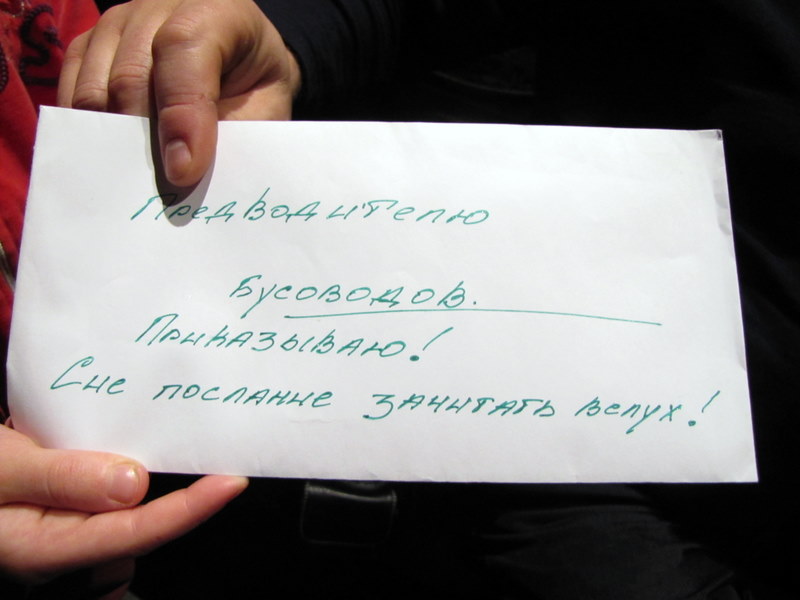 Предводителю
Бусоводов.
Приказываю!
Сие послание зачитать вслух!